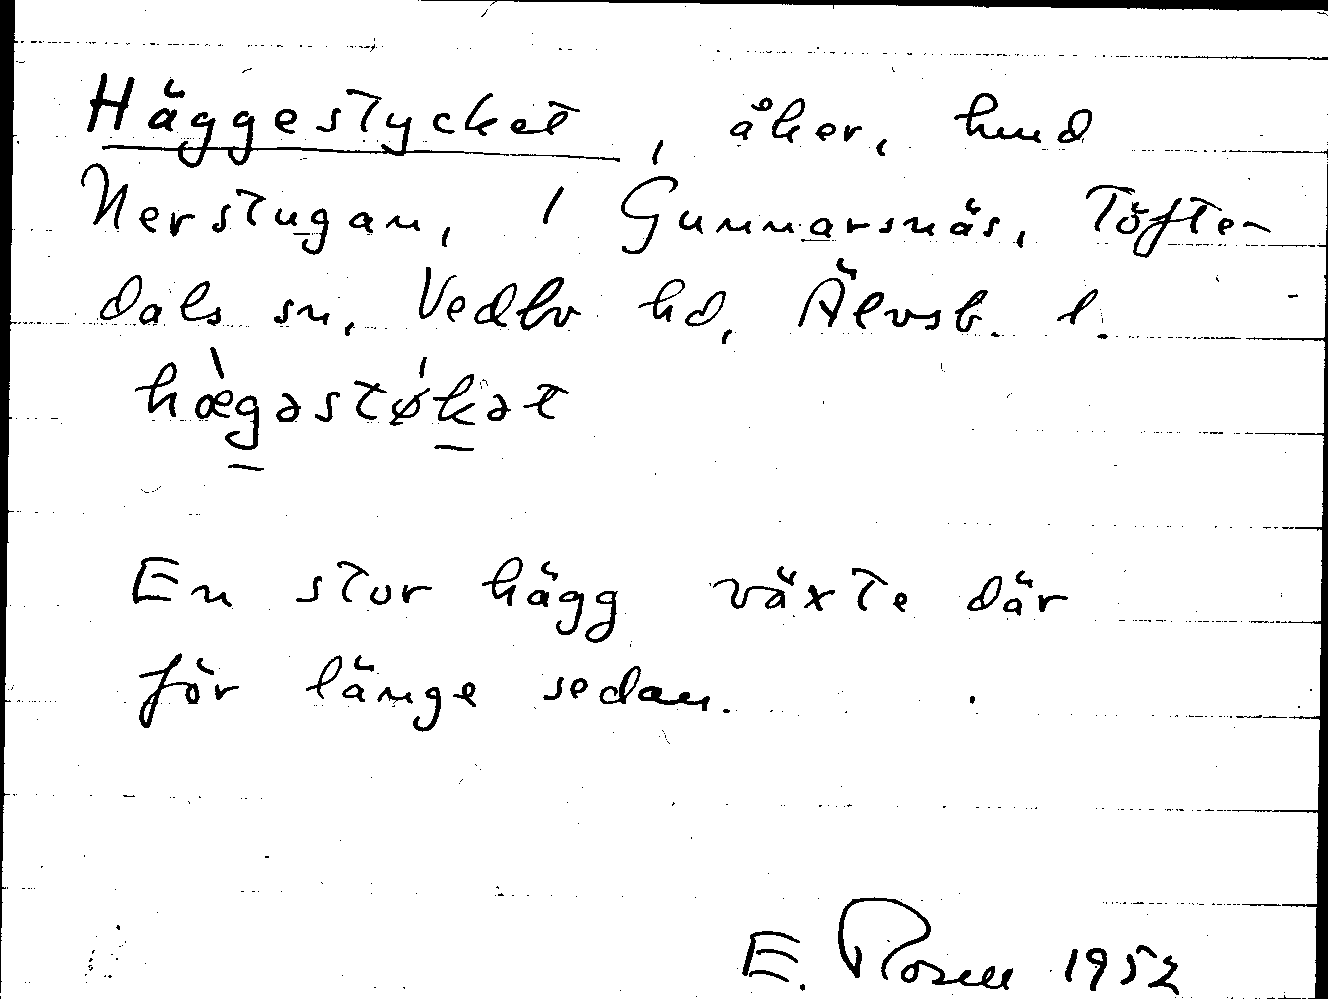 Häggestycket, åker, hmd
Nerstugan, 1 Gunnarsnäs, Töfte-
dals sn, Vedbo hd, Älvsb. l.
hæ̀gəstǿkət
En stor hägg växte där
för länge sedan.
E. Rosell 1952